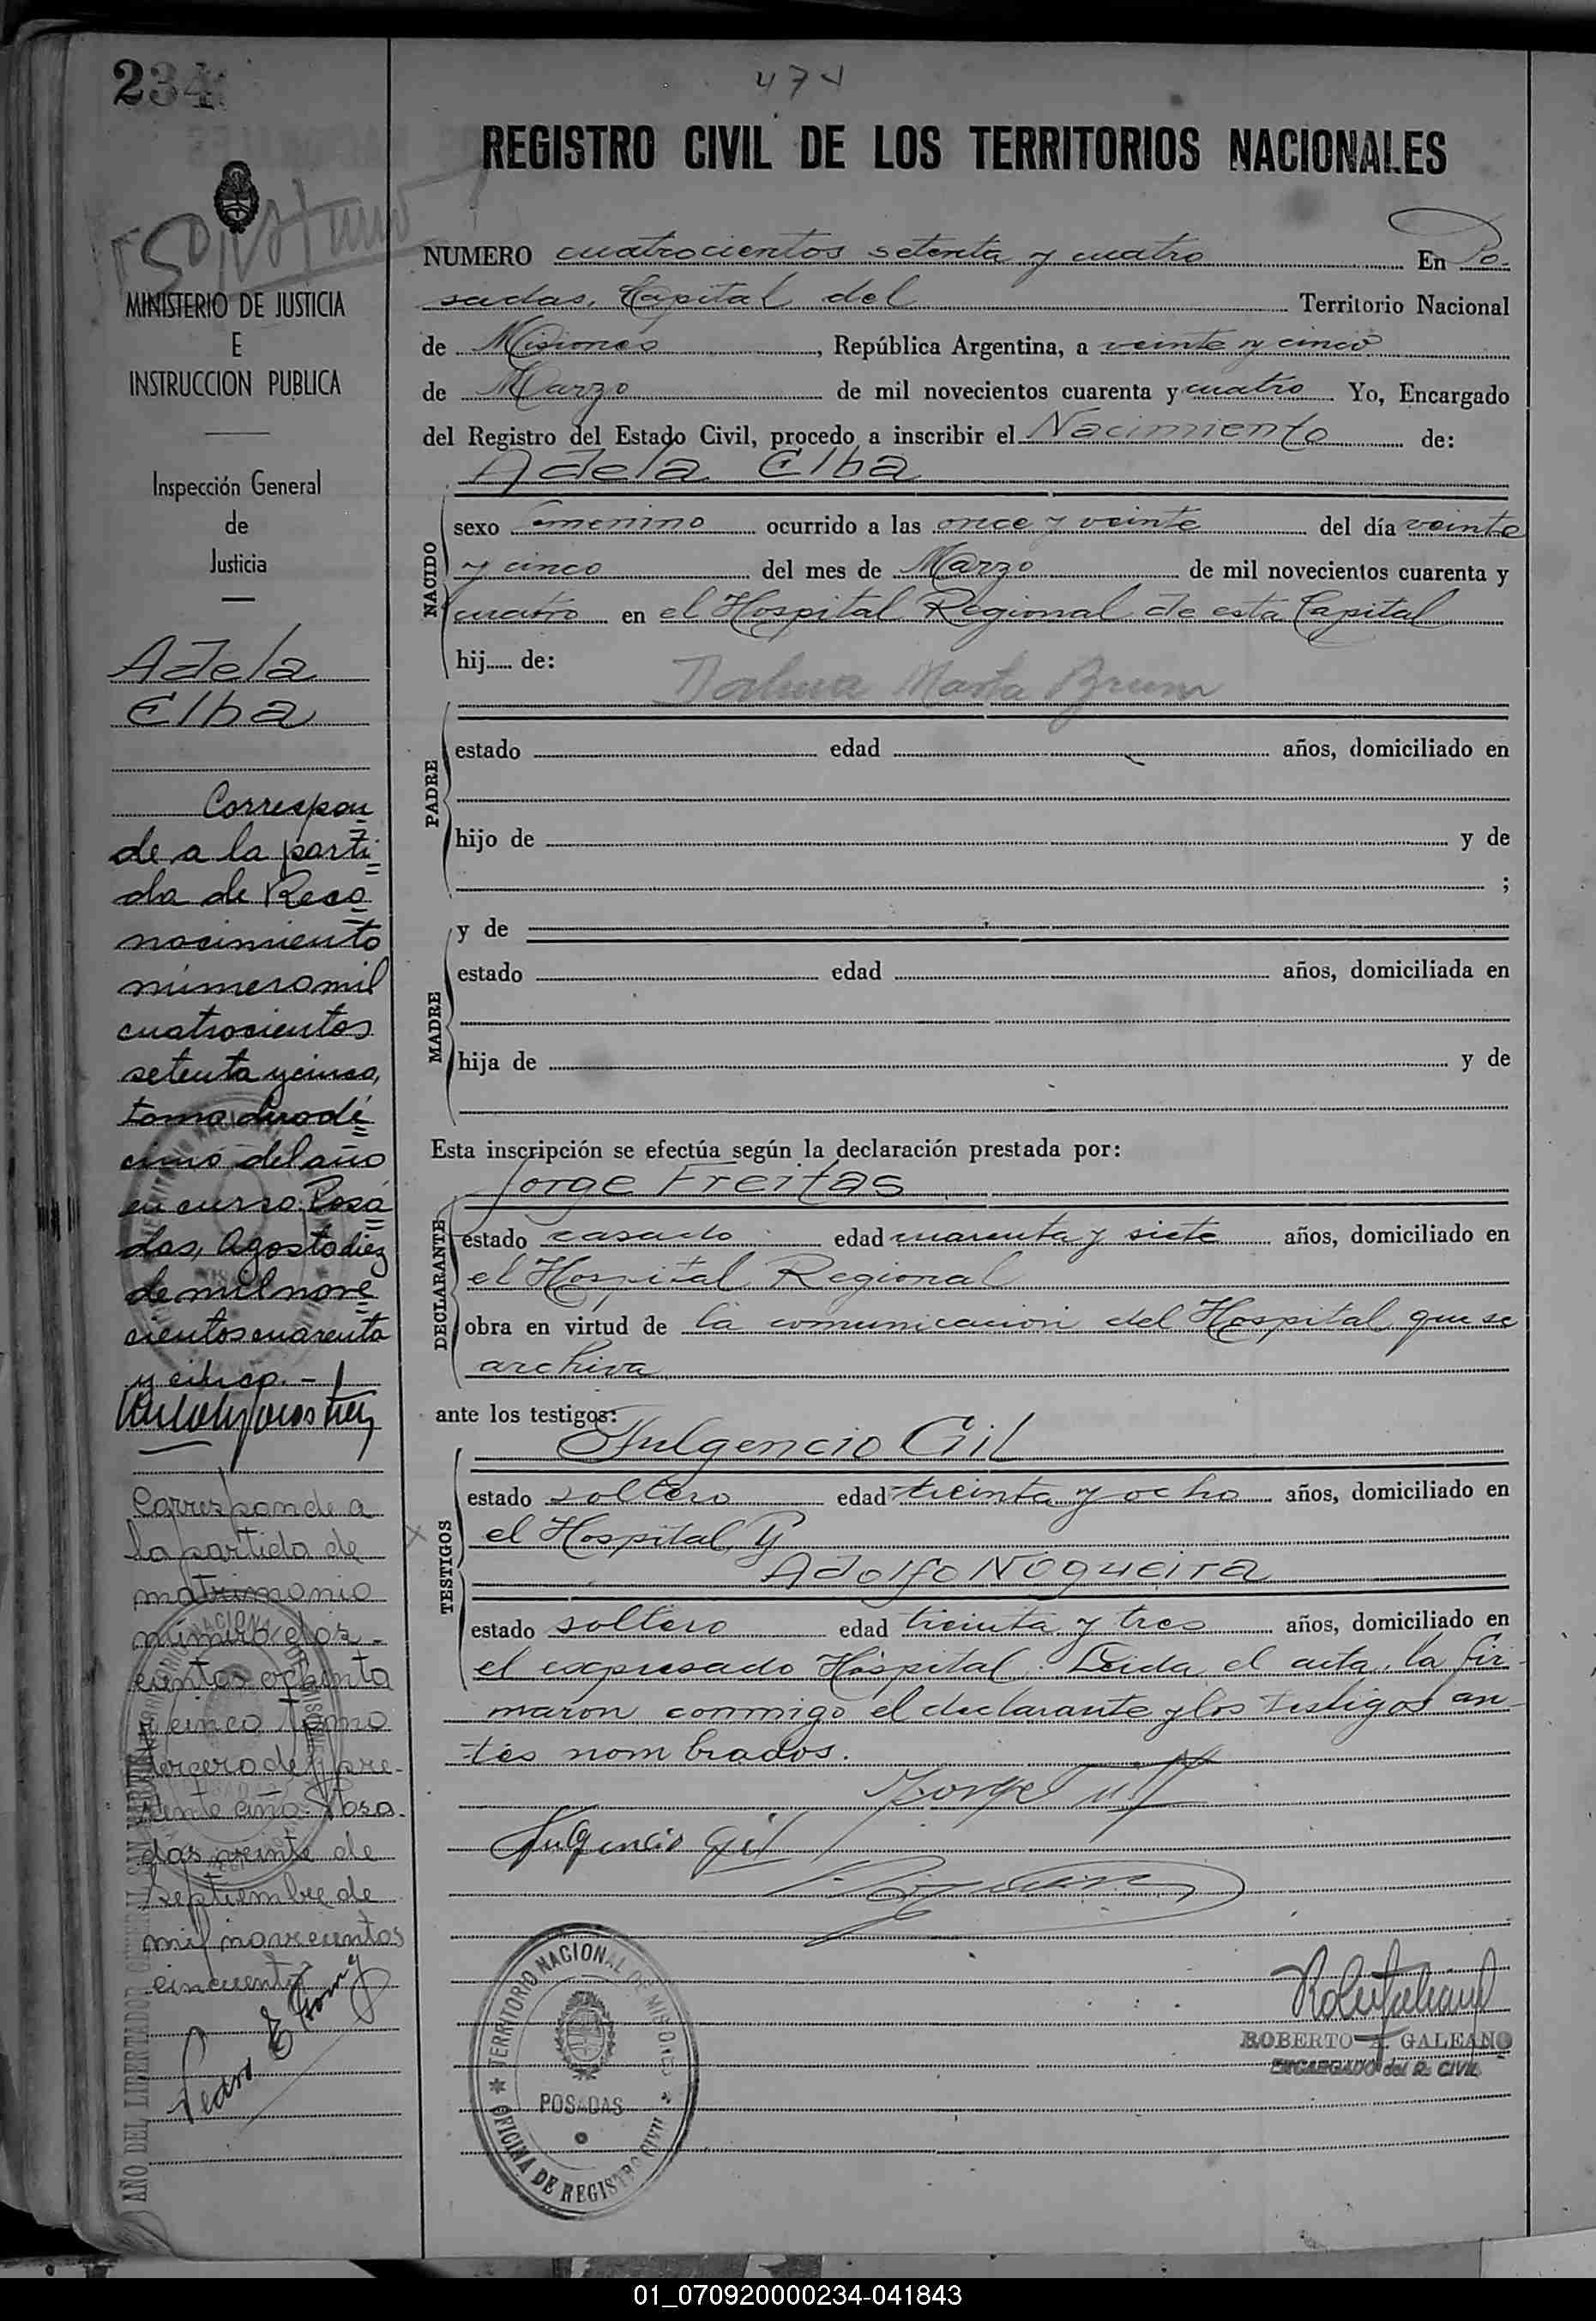 234
474
REGISTRO CIVIL DE LOS TERRITORIOS NACIONALES
MINISTERIO DE JUSTICIA
E
INSTRUCCION PUBLICA
Inspección General
de
Justicia
Adela
Elba
Correspon
de a la parti
da de Reco
nocimiento
número mil
cuatrocientos
setenta y cinco,
tomo duodé
cimo del año
en curso. Posa
das, Agosto diez
de mil nove
cientos cuarenta
y cinco. -
Corresponde a
la partida de
matrimonio
número dos-
cientos ochenta
y cinco tomo
tercero del pre-
sente año. Posa-
das, veinte de
septiembre de
mil novecientos
cincuenta
AÑO DEL LIBERTADOR GENERAL SAN MARTIN
NUMERO cuatrocientos setenta y cuatro En Po-
sadas, Capital del Territorio Nacional
de Misiones, República Argentina, a veinte y cinco
de Marzo de mil novecientos cuarenta y cuatro Yo, Encargado
del Registro del Estado Civil, procedo a inscribir el Nacimiento de:
Adela Elba
NACIDO
sexo femenino ocurrido a las once y veinte del día veinte
y cinco del mes de Marzo de mil novecientos cuarenta y
cuatro en el Hospital Regional de esta Capital
hij...... de:
Marta
PADRE
estado edad años, domiciliado en
hijo de y de
;
y de
MADRE
estado edad años, domiciliada en
hija de y de
Esta inscripción se efectúa según la declaración prestada por:
Jorge Freitas
DECLARANTE
estado casado edad cuarenta y siete años, domiciliado en
el Hospital Regional
obra en virtud de la comunicación del Hospital que se
archiva
ante los testigos:
Fulgencio Gil
TESTIGOS
estado soltero edad treinta y ocho años, domiciliado en
el Hospital, y
Adolfo Nogueira
estado soltero edad treinta y tres años, domiciliado en
el expresado Hospital. Leida el acta, la fir-
maron conmigo el declarante y los testigos an-
tes nombrados.
Fulgencio Gil
TERRITORIO NACIONAL DE MISIONES
POSADAS
OFICINA DE REGISTRO CIVIL
ROBERTO A. GALEANO
ENCARGADO del R. CIVIL
01_070920000234-041843